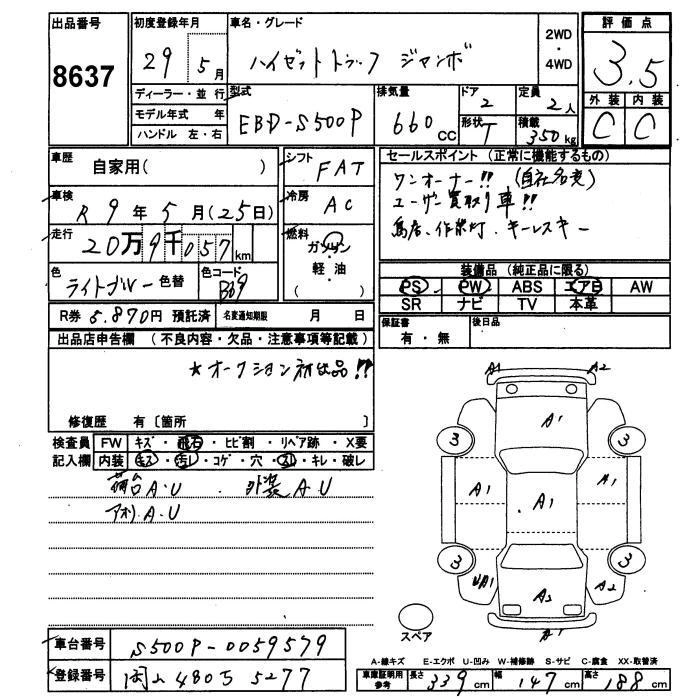 出品番号
8637
初度登録年月
29 5月
車名・グレード
ハイゼットトラック ジャンボ
2WD
・
4WD
評価点
3.5
外装 内装
C C
ディーラー・並行
モデル年式 年
ハンドル 左・右
型式
EBD-S500P
排気量
660 CC
ドア
2
形状
T
定員
2人
積載
350kg
車歴
自家用( )
シフト
FAT
車検
R9年5月(25日)
冷房
AC
走行
20万9千057km
燃料
ガソリン
・
軽・油
( )
色
ライトブルー 色替
色コード
B69
R券 5.870円 預託済
名変通知期限 月 日
セールスポイント (正常に機能するもの)
ワンオーナー!! (自社名変)
ユーザー買取り車!!
作業灯、キーレスキー
装備品 (純正品に限る)
PS PW ABS エアB AW
SR ナビ TV 本革
保証書
有・無
後日品
出品店申告欄 (不良内容・欠品・注意事項等記載)
★オークション初出品!!
修復歴 有〔箇所 〕
検査員
記入欄
FW キズ・飛石・ヒビ割・リペア跡・X要
内装 キズ・汚レ・コゲ・穴・スレ・キレ・破レ
荷台A.U 外装A.U
アオリA.U
A1 A2
A1
3 3
A1 A1 A1
3 3
UA1 A2 A2
A1
スペア
A-線キズ E-エクボ U-凹み W-補修跡 S-サビ C-腐食 XX-取替済
車台番号
S500P-0059579
登録番号
岡山480う5277
車庫証明用
参考
長さ 339cm 幅 147cm 高さ 188cm